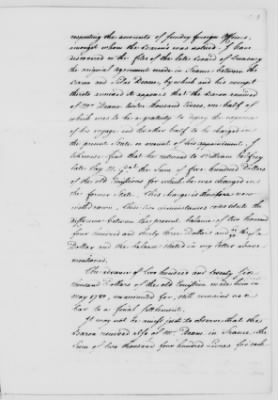 respecting the accounts of sundry foreign Officers,
amongst whom the Baron was noticed. I have
discovered in the files of the late board of Treasury
the original agreement made in France between the
Baron and Silas Deane, by which and his receipt
thereto annexed it appears that the Baron received
of Mr Deane twelve thousand livres, one half of
which was to be a gratuity to defray the expence
of his voyage and the other half to be charged in
the present State, on account of his appointment. I
likewise find that he returned to William Palfrey
late Pay Mr. Genl. the Sum of five hundred Dollars
of the old Emissions for which he was charged in
the former State. This charge is therefore now
withdrawn. These two circumstances constitute the
difference between the present balance of two hundred
four hundred and thirty three Dollars and
Dollar and the balance stated in my letter above
mentioned.
The advance of two hundred and twenty six
thousand Dollars of the old Emission made him in
May 1780, unaccounted for, still remains as a
bar to a final Settlement.
It may not be amiss just to observe that the
Baron received also of Mr Deane in France, the
Sum of two thousand four hundred Livres for each